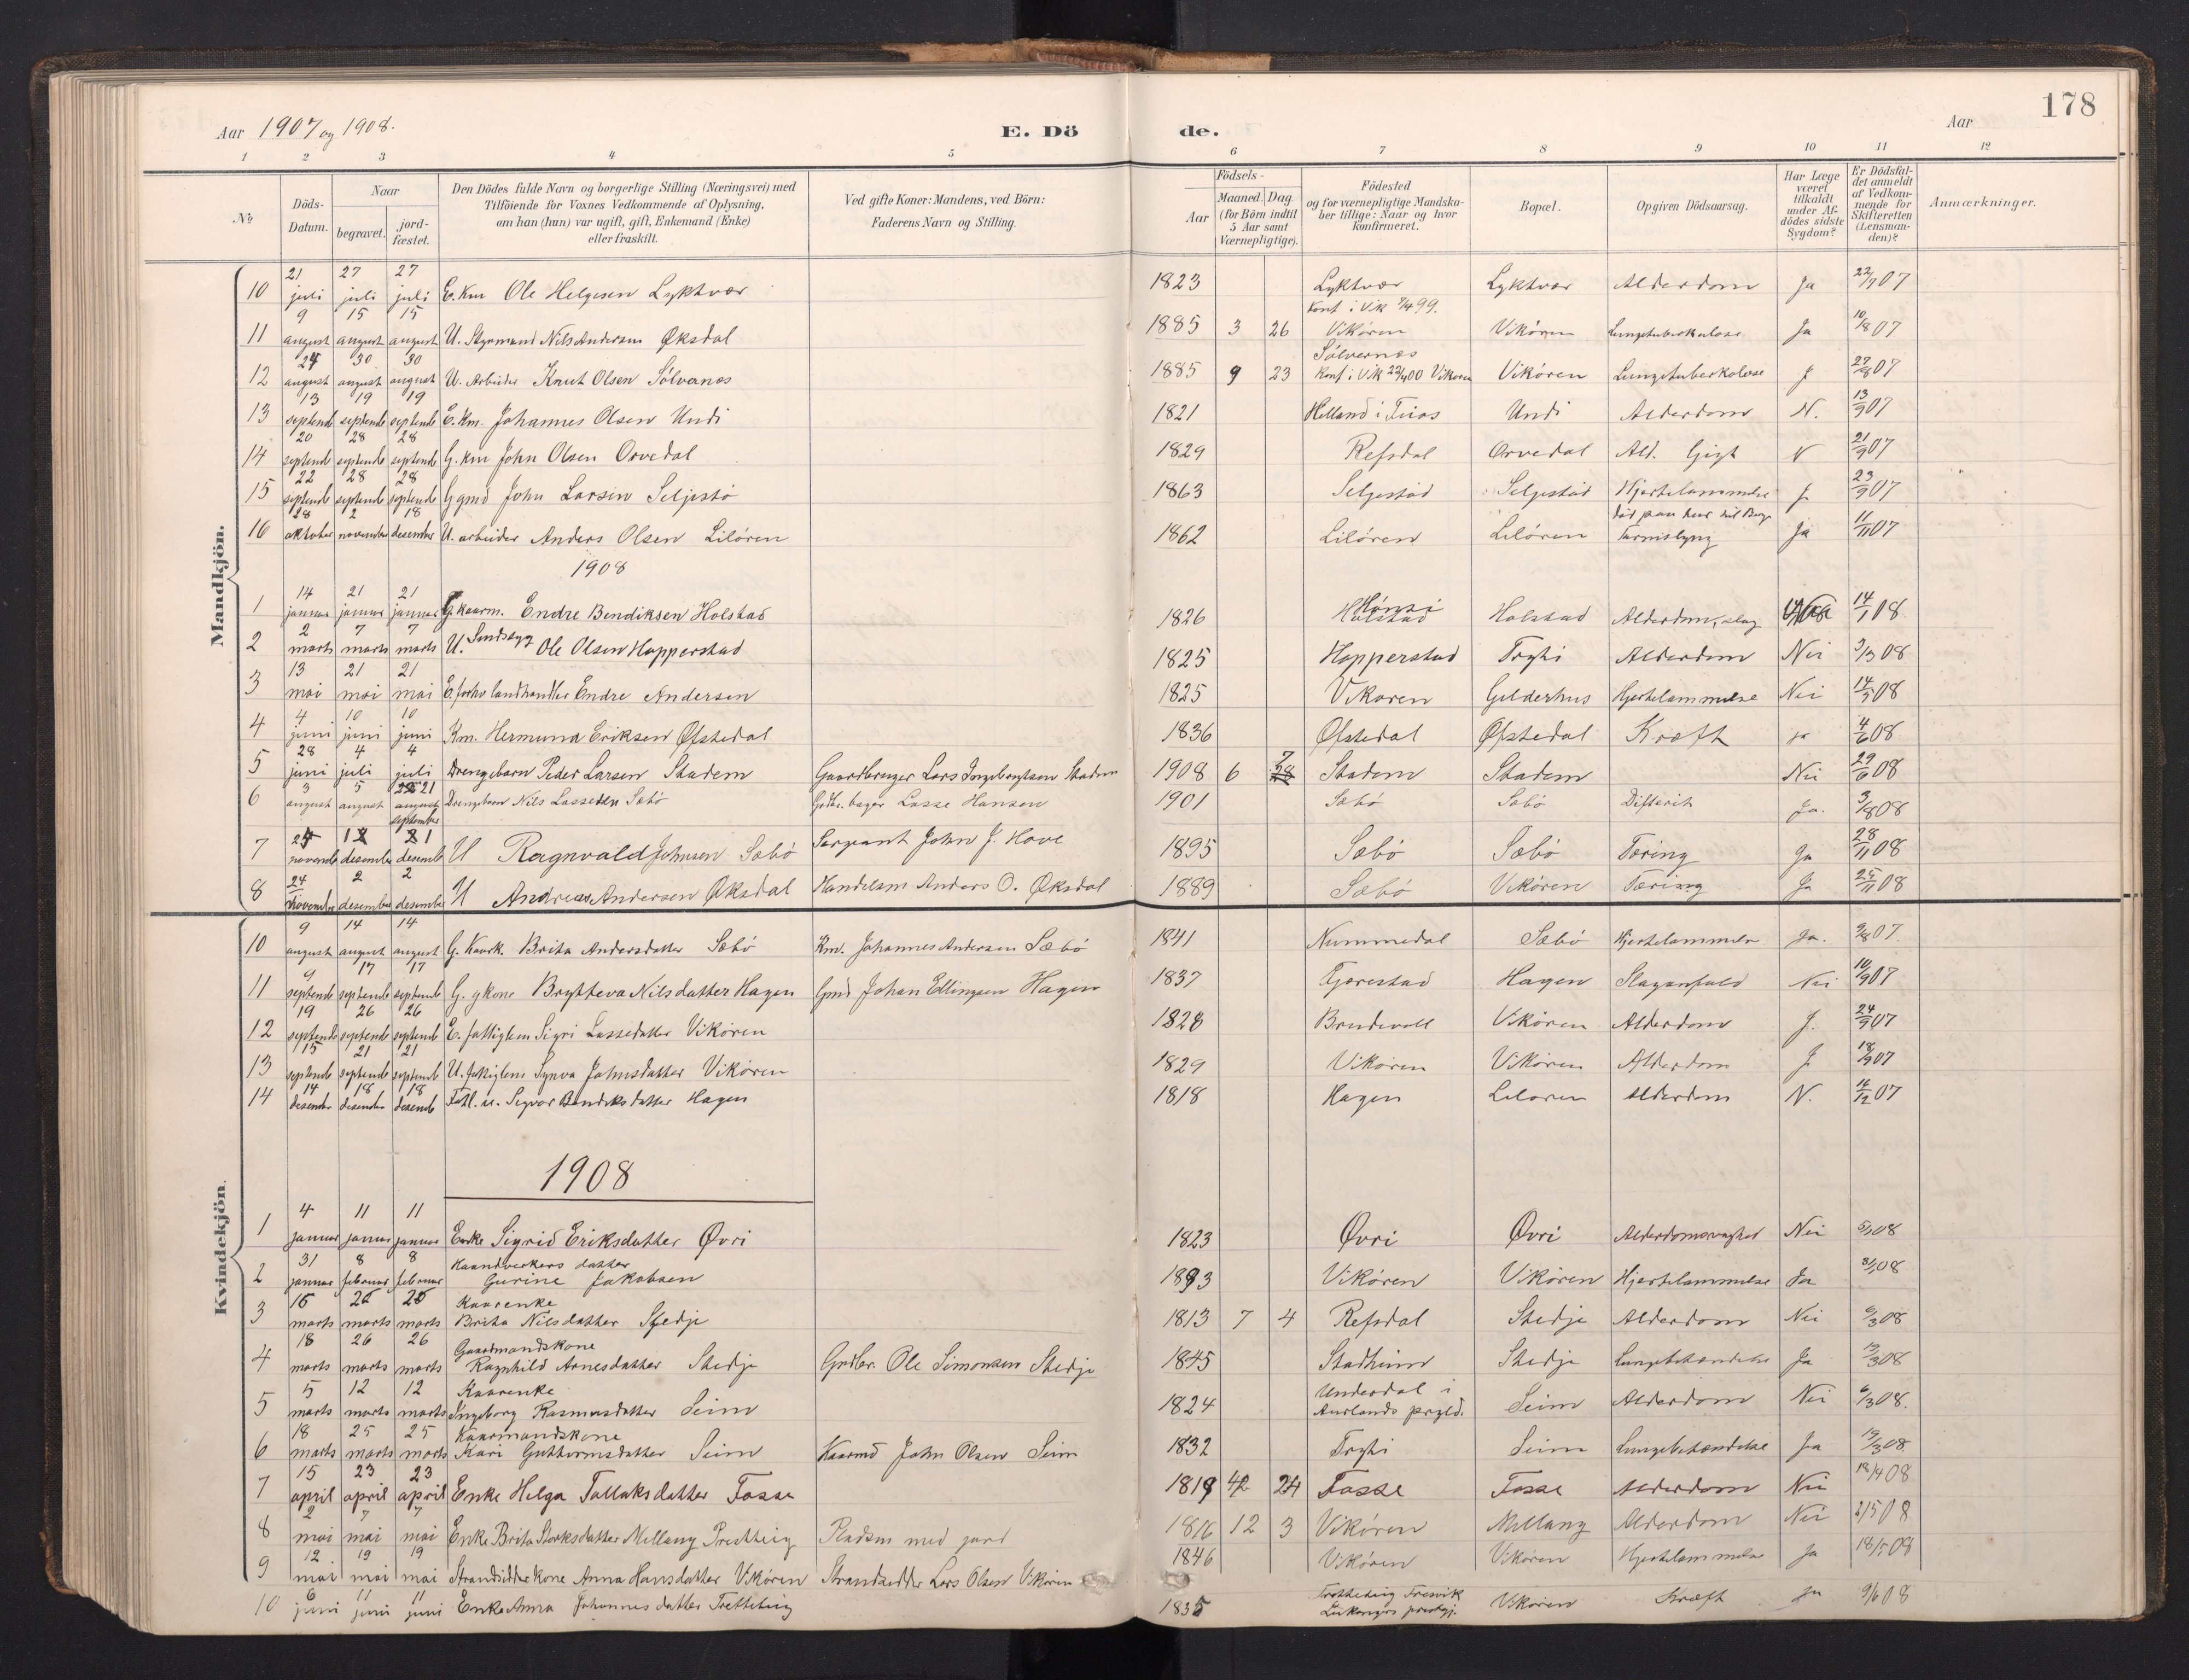 Aar 1907 og 1908.
E. Dö de.
Aar
178
1 2 3 4 5 6 7 8 9 10 11 12
№
Döds-Datum.
Naar
begravet.
jord-fæstet.
Den Dödes fulde Navn og borgerlige Stilling (Næringsvei) med
Tilföiende for Voxnes Vedkommende af Oplysning,
om han (hun) var ugift, gift, Enkemand (Enke)
eller fraskilt.
Ved gifte Koner: Mandens, ved Börn:
Faderens Navn og Stilling.
Födsels-
Aar
Maaned. Dag.
(for Börn indtil
5 Aar samt
Værnepligtige).
Födested
og for værnepligtige Mandska-
ber tillige: Naar og hvor
konfirmeret.
Bopæl.
Opgiven Dödsaarsag.
Har Læge
været
tilkaldt
under Af-
dödes sidste
Sygdom?
Er Dödsfal-
det anmeldt
af Vedkom-
mende for
Skifteretten
(Lensman-
den)?
Anmærkninger.
Mandkjön.
10 21 juli 27 juli 27 juli E. Km Ole Helgesen Lyktvor 1823 Lyktvor Lyktvor Alderdom Ja 22/7 07
11 9 august 15 august 15 august U. Styrmand Nils Andersen Øksdal 1885 3 26 Konf i Vik 99. Vikören Vikören Lungetuberkulose Ja 10/8 07
12 24 august 30 august 30 august U. Arbeider Knut Olsen Sölvernes 1885 9 23 Sölvernes Konf i Vik 00 Vikören Vikören Lungetuberkolose J 27/8 07
13 13 septembe 19 septembe 19 septembe E. Km. Johannes Olsen Undi 1821 Helland i Undi Alderdom N. 13/9 07
14 20 septembe 28 septembe 28 septembe G. Km John Olsen Orvedal 1829 Refsdal Orvedal Ald. Gigt N 21/9 07
15 22 septembe 28 septembe 28 septembe G gmd John Larsen Seljestö 1863 Seljestad Seljestad Hjertelammelse J. 23/9 07
16 28 oktober 2 november 18 desember U. arbeider Anders Olsen Lilören 1862 Lilören Lilören Tarmslyng Ja 11/11 07
1908
1 14 januar 21 januar 21 januar G. kaarm. Endre Bendiksen Holstad 1826 Hönsi Holstad Alderdom, slag 14/1 08
2 2 marts 7 marts 7 marts U. Sindssyg Ole Olsen Hopperstad 1825 Hopperstad Tryti Alderdom Nei 3/3 08
3 13 mai 21 mai 21 mai E. forhv landhandler Endre Andersen 1825 Vikoren Gilderhus Hjertelammelse Nei 14/5 08
4 4 juni 10 juni 10 juni Km. Hermund Eriksen Øfstedal 1836 Øfstedal Øfstedal Kræft ja 4/6 08
5 28 juni 4 juli 4 juli Drengebarn Peder Larsen Stadem Gaardbruger Lars Ingebrigtsen Stadem 1908 6 7 Stadem Stadem Nei 29/6 08
6 3 august 5 august 21 september Drengebarn Nils Lassesen Sæbö Gdbr. Lasse Hansen 1901 Sæbö Sæbö Difterit Ja. 3/8 08
7 novembe desember 1 desemb U Ragnvald Johnsen Sæbö Sersjant John J. Hove 1895 Sæbö Sæbö Tæring Ja 28/11 08
8 24 november 2 desember 2 desember U Andreas Andersen Øksdal Handelsm Anders O. Øksdal 1889 Sæbö Vikören Tæring Ja 25/11 08
Kvindekjön.
10 9 august 14 august 14 august G. Kaark. Brita Andersdatter Sæbö Km. Johannes Andersen Sæbö 1841 Nummedal Sæbö Hjertelammelse Ja. 9/8 07.
11 9 septembe 17 septembe 17 septemb G. gkone Brytteva Nilsdatter Hagen Gmd Johan Ellingsen Hagen 1837 Tjorestad Hagen Slaganfald Nei 10/9 07
12 19 septembe 26 septembe 26 septembe E. fattiglem Sigri Lassedatter Vikören 1828 Brudevoll Vikören Alderdom J. 24/9 07
13 15 septembe 21 septembe 21 septemb U. fattiglem Synva Johnsdatter Vikören 1829 Vikören Vikören Alderdom J 18/9 07
14 14 desember 18 desember 18 desemb u. Sigvor Bendiksdatter Hagen 1818 Hagen Lilören Alderdom N. 07
1908
1 4 januar 11 januar 11 januar Enke Sigrid Eriksdatter Øvri 1823 Øvri Øvri Alderdomssvaghed Nei 5/1 08
2 31 januar 8 februar 8 februar Haandverkers datter Gurine Jakobsen 1893 Vikören Vikören Hjertelammelse Ja 08
3 marts marts marts Kaarenke Brita Nilsdatter Stedje 1813 7 4 Refsdal Stedje Alderdom Nei 08
4 18 marts 26 marts 26 marts Gaardmandskone Ragnhild Arnesdatter Stedje Grdbr. Ole Simonsen Stedje 1845 Stadheim Stedje Lungebetændelse Ja 08
5 5 marts 12 marts 12 marts Kaarenke Ingeborg Rasmusdatter Seim 1824 Underdal i Aurlands prgld. Seim Alderdom Nei 6/3 08.
6 18 marts 25 marts 25 marts Kaarmandskone Kari Guttormsdatter Seim Kaarmd John Olsen Seim 1832 Tryti Seim Lungebetændelse Ja 08
7 15 april 23 april 23 april Enke Helga Tollaksdatter Fosse 1819 24 Fosse Fosse Alderdom Nei 08
8 2 mai 7 mai 7 mai Enke Brita Sturksdatter Mellang Pretteig Pladsm med jord 1816 12 3 Vikören Mellang Alderdom Nei 2/5 08
9 12 mai 19 mai 19 mai Strandsidderkone Anna Hansdatter Vikören Strandsidder Lars Olsen Vikören 1846 Vikören Vikören Hjertelammelse Ja 18/5 08
10 6 juni 11 juni 11 juni Enke Anna Johannesdatter Tretteteig 1835 Tretteteig Fresvik Leikanger prestgj. Vikören Kræft Ja 9/6 08